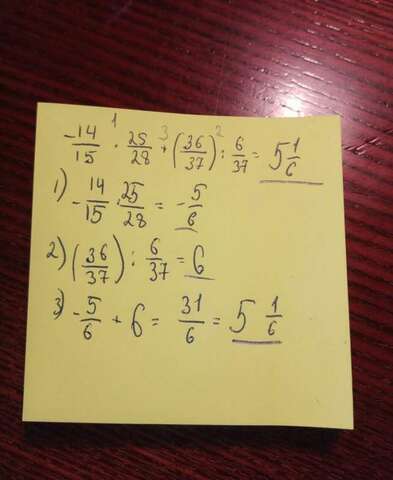 -14/15 · 25/28 + (36/37) : 6/37 = 5 1/6
1 3 2
1) -14/15 · 25/28 = -5/6
2) (36/37) : 6/37 = 6
3) -5/6 + 6 = 31/6 = 5 1/6